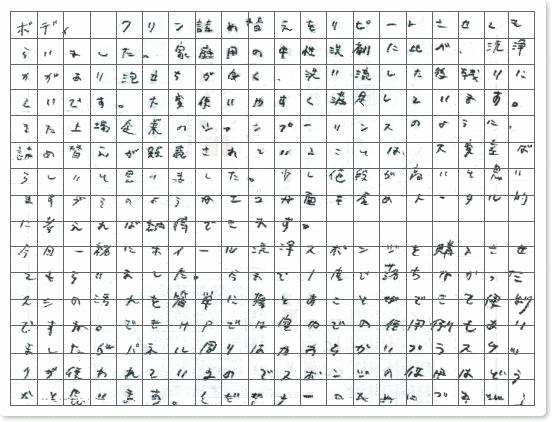 ボディ クリン詰め替えをリピートさせても
らいました。家庭用の中性洗剤に比べ、洗浄
力があり泡立ちが良く、洗い流した後残りに
くいです。大変使いやすく満足しています。
また上場企業のシャンプーリンスのように、
詰め替えが販売されていることは、大変素ば
らしいと思いました。少し値段が高いと思い
ますがそのようなエコな面も含めトータル的
に考えれば納得できます。
今回一緒にホイール洗浄スポンジを購入させ
てもらいました。今まで1度で落ちなかった
スミの汚れも簡単に落とすことができて便利
ですね。 HPでは室内での使用例もあり
ましたがパネル周りは
が使われていますのでスポンジの使用はどう
かと思います。